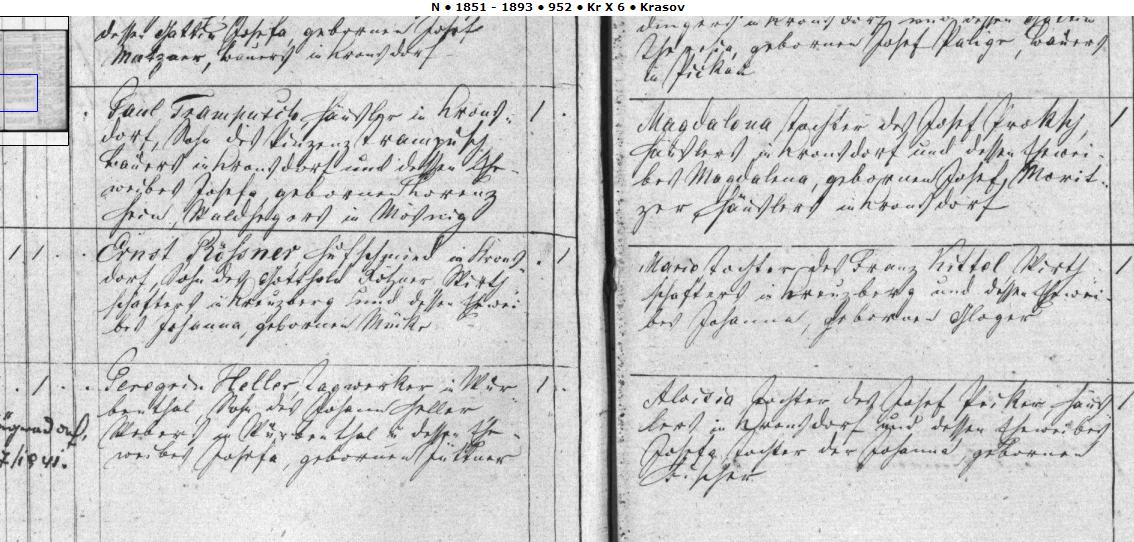 N • 1851 - 1893 • 952 • Kr X 6 • Krasov
dessen Gattin Josefa gebornen Josef
Matzner, Bauers in Kronsdorf
Paul Trampusch, Häusler in Krons-
dorf, Sohn des Vinzenz Trampusch,
Bauers in Kronsdorf und dessen Ehe-
weibes Josefa gebornen Lorenz
Hein, Waldhegers in Mösnig
Ernst Rösner Hufschmied in Krons
dorf, Sohn des Gotthold Wirth
schafters in Kreuzberg und dessen Ehewei
bes Johanna gebornen Mücke
Peregrin Heller Tagwerker in Wür
benthal, Sohn des Johann Heller
Webers in Würbenthal u dessen Ehe-
weibes Josefa, gebornen Püttner
7/1841.
in Kronsdorf und dessen Gattin
Theresia, gebornen Josef Palige, Bauers
in Pickau
Magdalena Tochter des Josef
Häuslers in Kronsdorf und dessen Ehewei-
bes Magdalena, gebornen Josef Morit-
zer Häuslers in Kronsdorf
Marie Tochter des Franz Kittel Wirth
schafters in Kreuzberg und dessen Ehewei-
bes Johanna, gebornen Gloger
Aloisia Tochter des Josef Häus
lers in Kronsdorf und dessen Eheweibes
Josefa Tochter der Johanna gebornen
Fischer